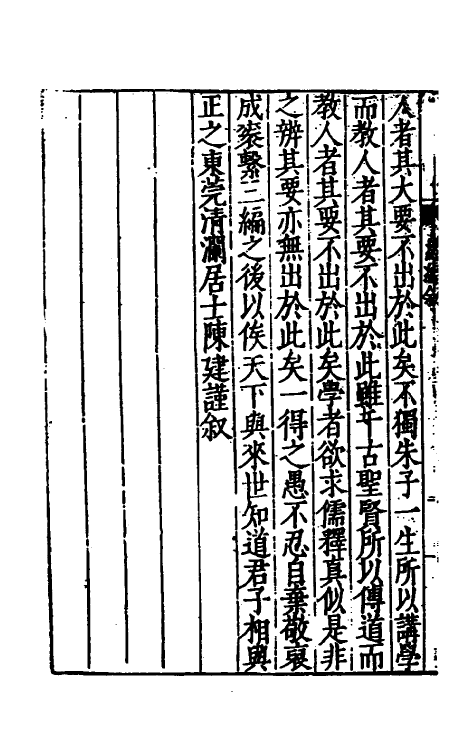 人者其大要不出於此矣不獨朱子一生所以講學
而教人者其要不出於此雖千古聖賢所以傳道而
教人者其要不出於此矣學者欲求儒釋真似是非
之辨其要亦無出於此矣一得之愚不忍自棄敬裒
成袠繫二編之後以俟天下與來世知道君子相與
正之東莞清瀾居士陳建謹叙